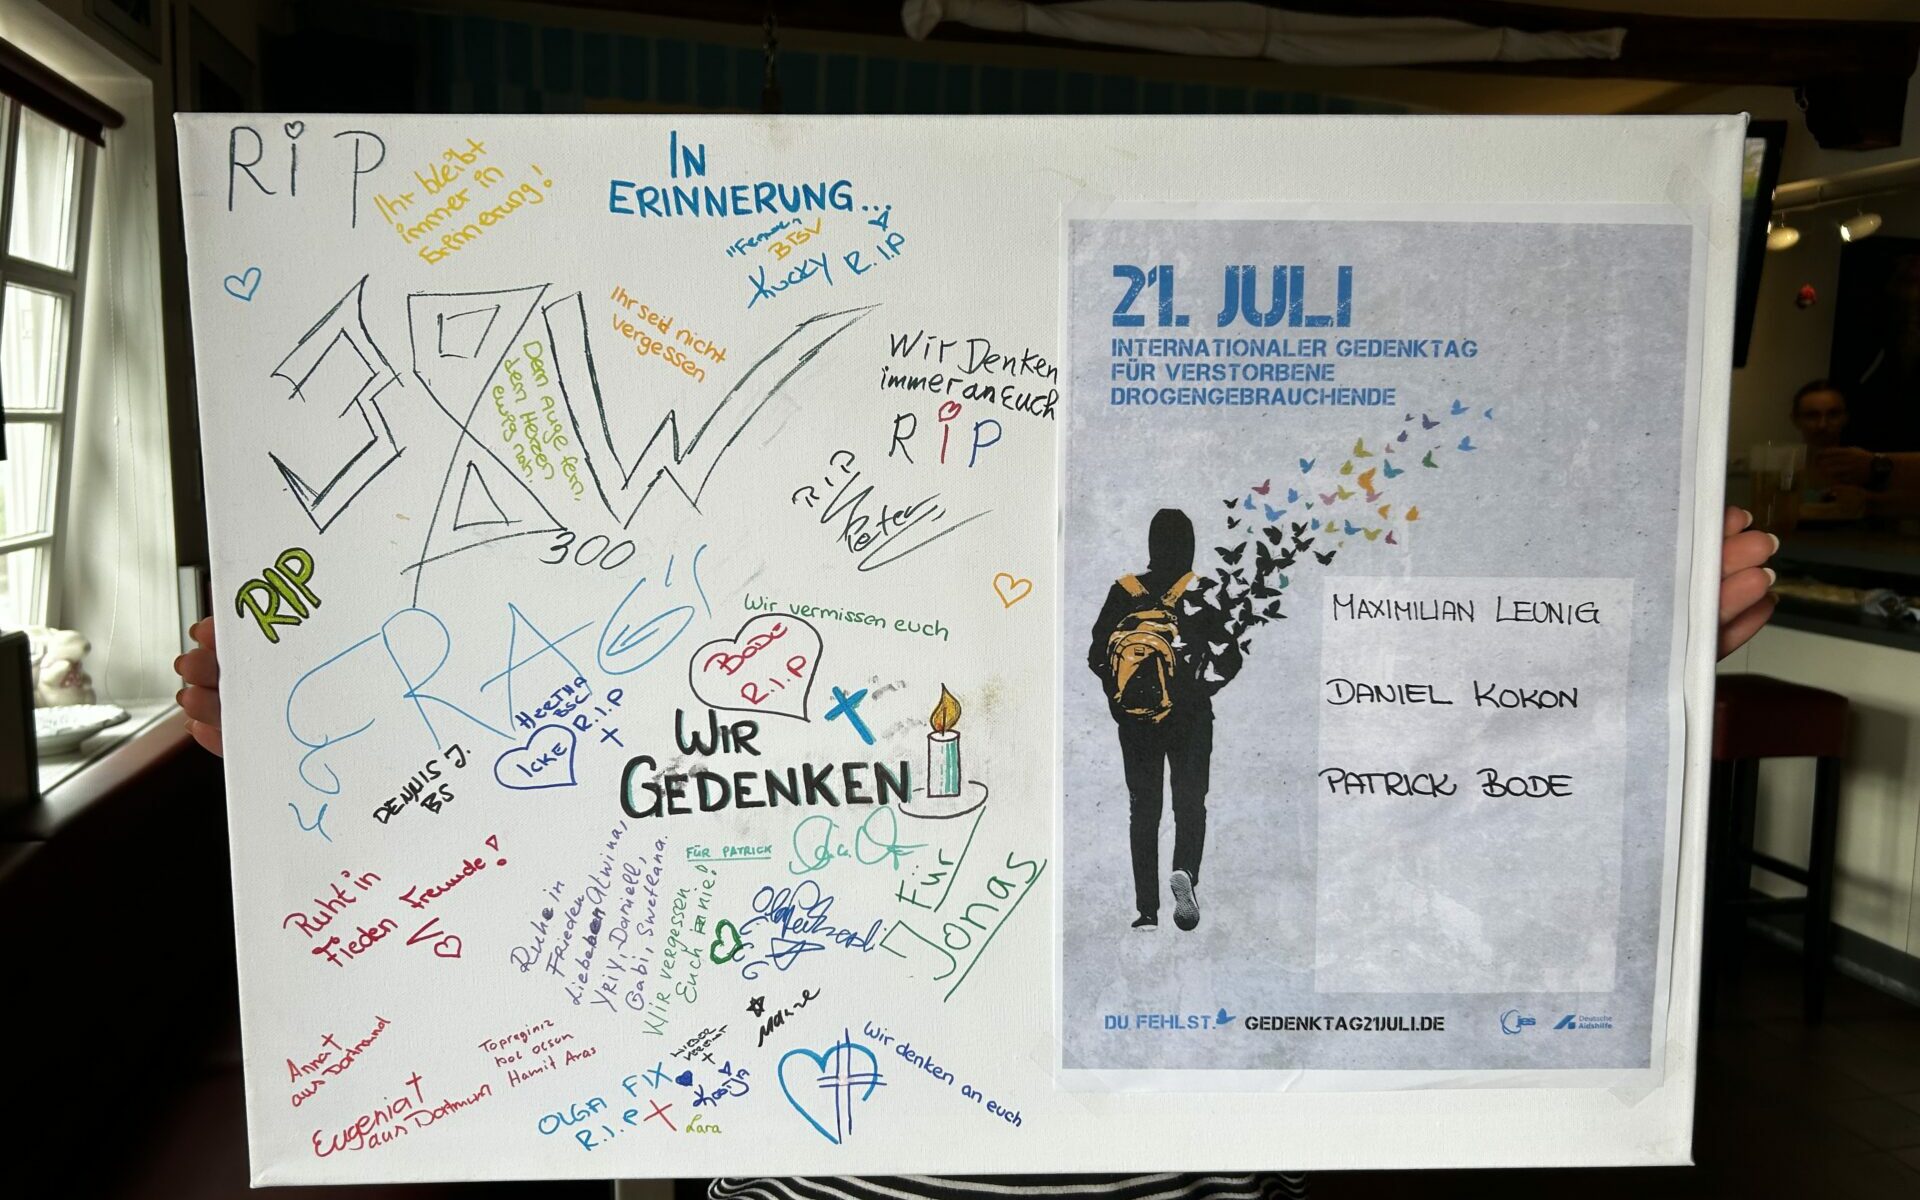 RiP
Ihr bleibt
immer in
Erinnerung!
IN
ERINNERUNG...
BTSV
Kucky R.I.P
Ihr seid nicht
vergessen
Dem Auge fern,
dem Herzen
ewig nah.
300
Wir Denken
immer an Euch
RiP
RiP
Peter
RIP
Wir vermissen euch
BODE
R.I.P
HERTHA
BSC
R.I.P
ICKE
DENNIS J.
BS
WIR
GEDENKEN
Ruht in
Frieden Freunde!
Ruhe in
Frieden
Lieben Alwina,
Yriy, Daniell,
Gabi, Swetlana.
FÜR PATRICK
Wir vergessen
Euch nie!
Für
Jonas
Anna†
aus Dortmund
Eugenia†
aus Dortmund
Hamit Aras
OLGA FIX
R.I.P
Lara
Wir denken an euch
21. JULI
INTERNATIONALER GEDENKTAG
FÜR VERSTORBENE
DROGENGEBRAUCHENDE
MAXIMILIAN LEUNIG
DANIEL KOKON
PATRICK BODE
DU FEHLST. GEDENKTAG21JULI.DE
jes
Deutsche
Aidshilfe